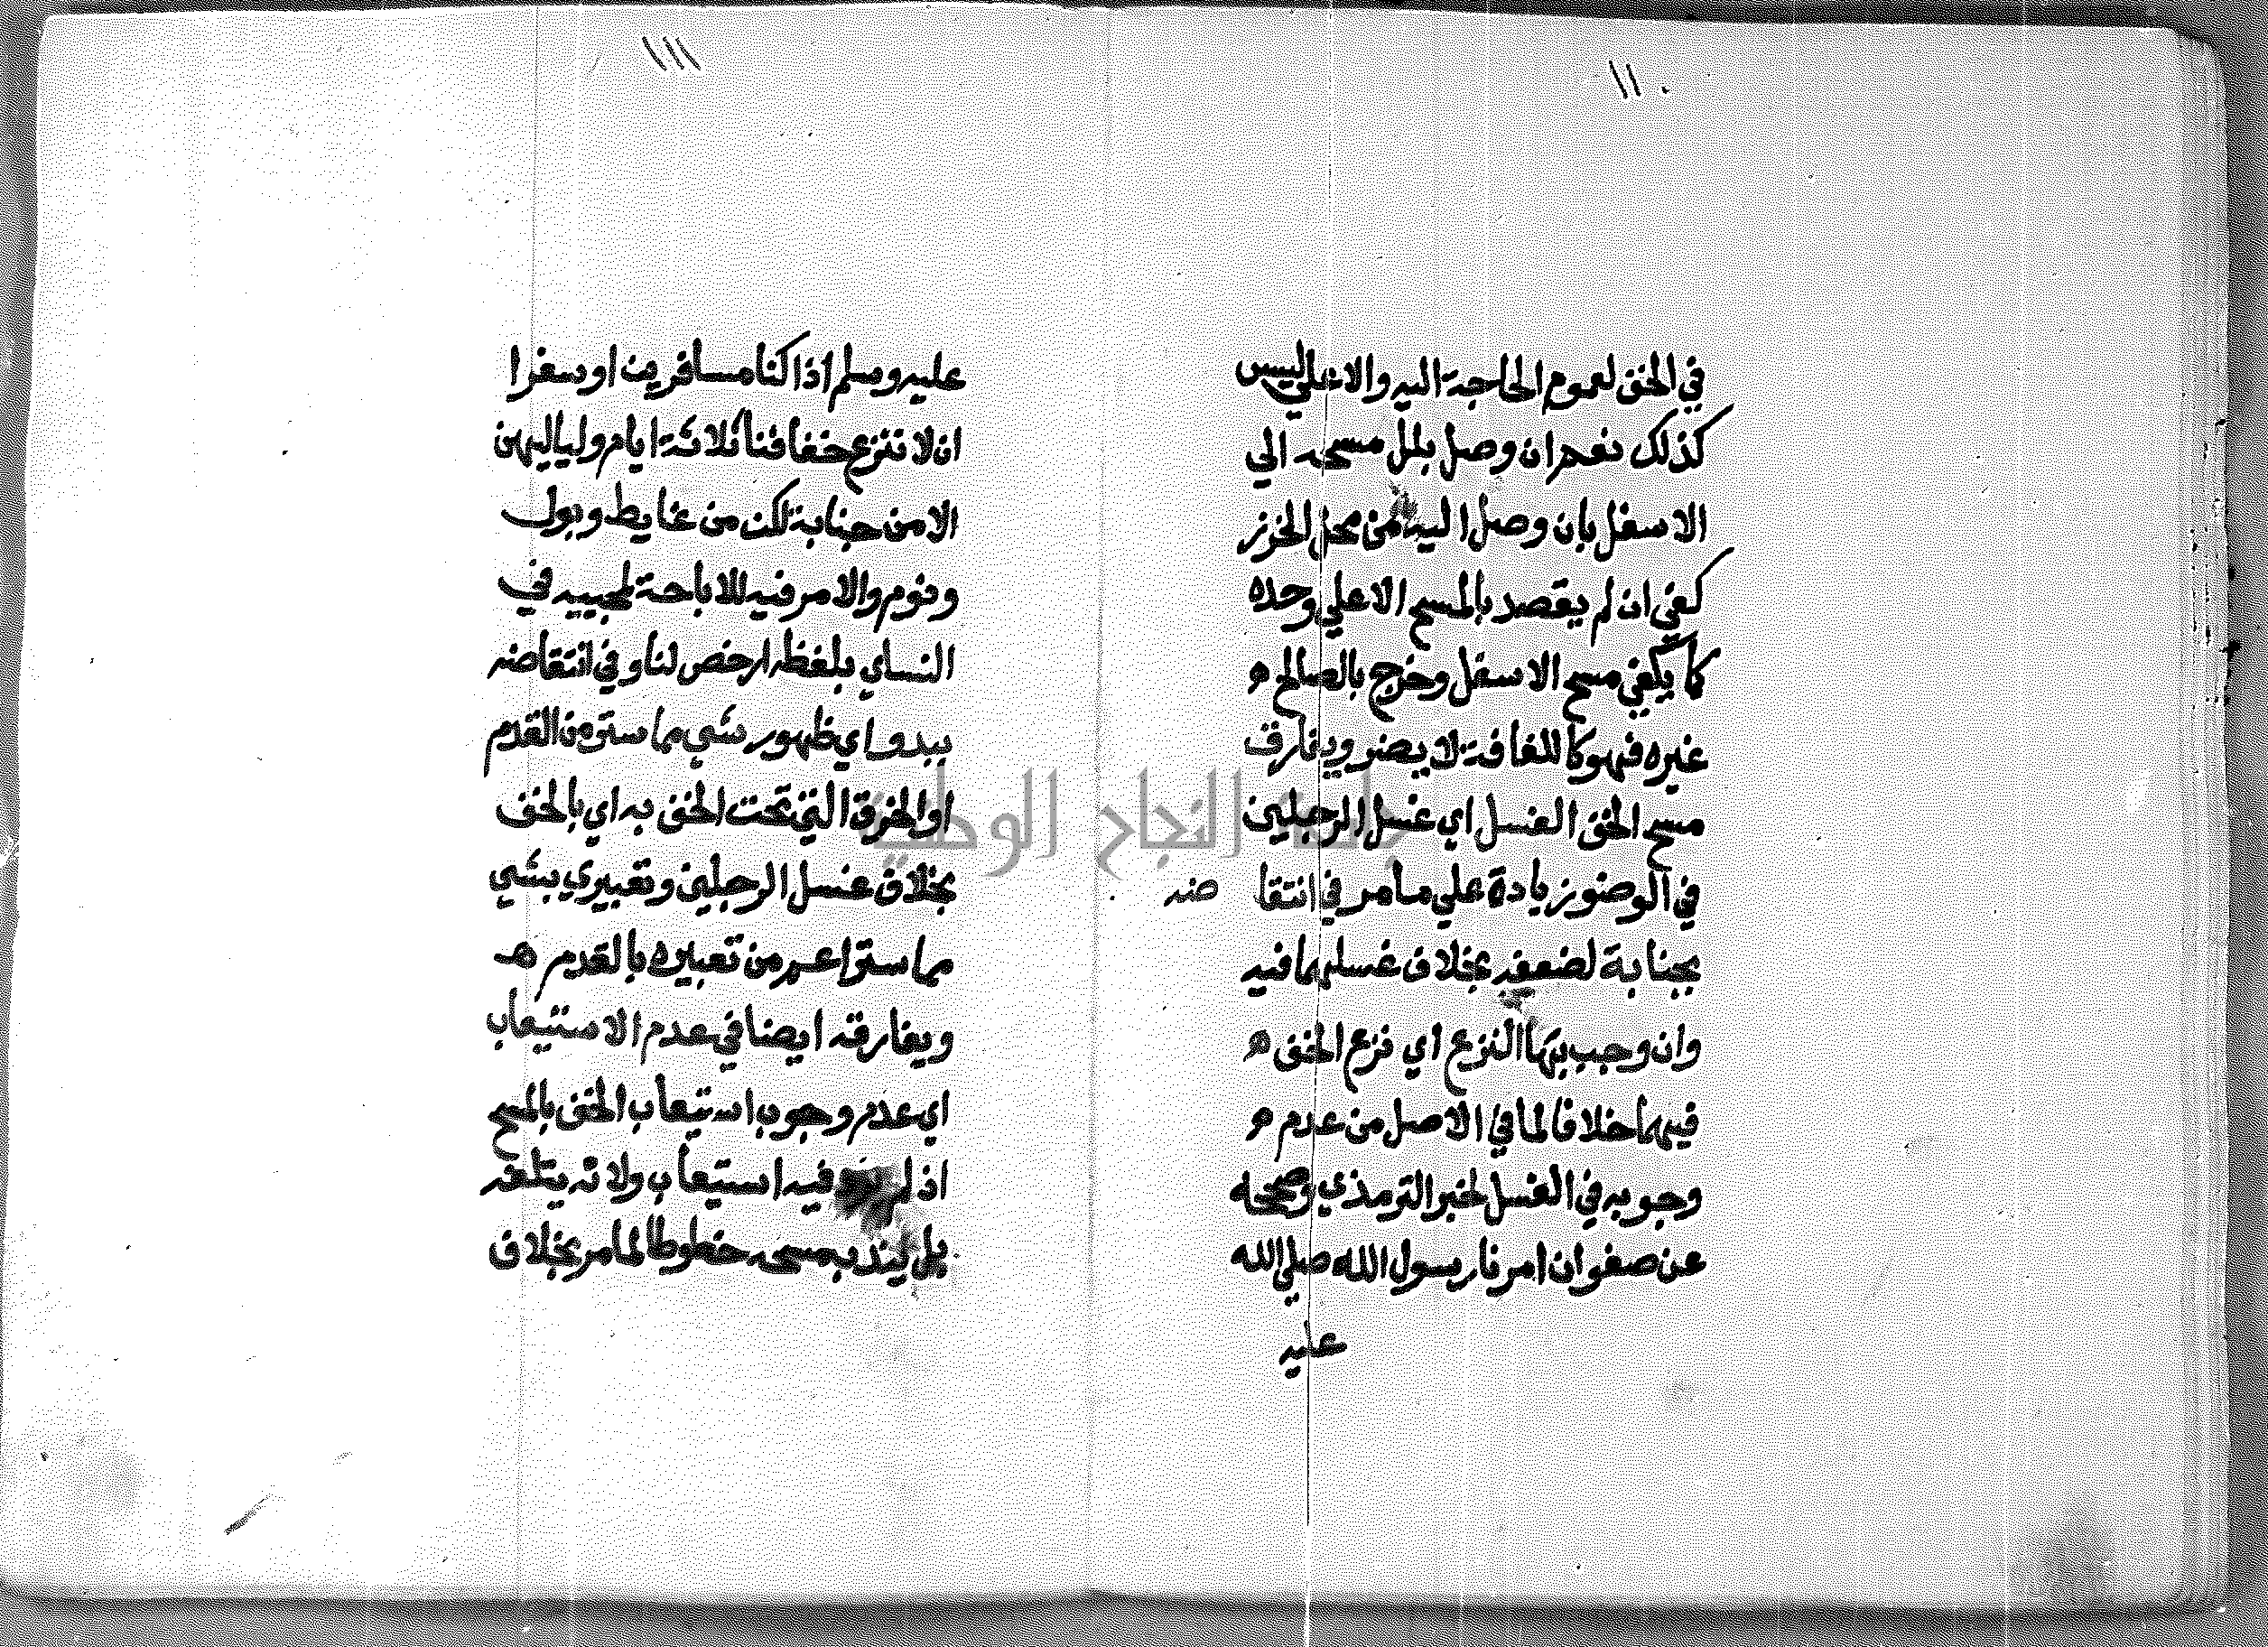 ١١٠
في الخف لعموم الحاجة اليه والاعلي ليس
كذلك نعم ان وصل بلل مسحه الي
الاسفل بان وصل اليه من محل الخرز
كفي ان لم يقصد بالمسح الاعلي وحده
كما يكفي مسح الاسفل وخرج بالصالح ه
غيره فهو كاللفافة لا يضر ويفارق
مسح الخف الغسل اي غسل الرجلين
في الوضوء زيادة علي ما مر في انتقا ضه
بجنابة لضعفه بخلاف غسلهما فيه
وان وجب بها النزع اي نزع الخف ه
فيهما خلافا لما في الاصل من عدم ه
وجوبه في الغسل لخبر الترمذي وصححه
عن صفوان امرنا رسول الله صلي الله
عليه
١١١
عليه وسلم اذا كنا مسافرين او سفرا
ان لا ننزع خفافنا ثلاثة ايام ولياليهن
الا من جنابة لكن من غايط وبول
ونوم والامر فيه للاباحة لمجييه في
النساي بلفظ ارخص لنا وفي انتقاضه
ببدو اي ظهور شي مما ستر من القدم
او الخرق التي تحت الخف به اي بالخف
بخلاف غسل الرجلين وتعبيري بشي
مما ستر اعم من تعبيره بالقدم ه
ويفارقه ايضا في عدم الاستيعاب
اي عدم وجوب استيعاب الخف بالمسح
اذ لم فيه استيعاب ولانه يتلفه
بل يندب مسحه خطوطا لما مر بخلاف
جامعة النجاح الوطنية